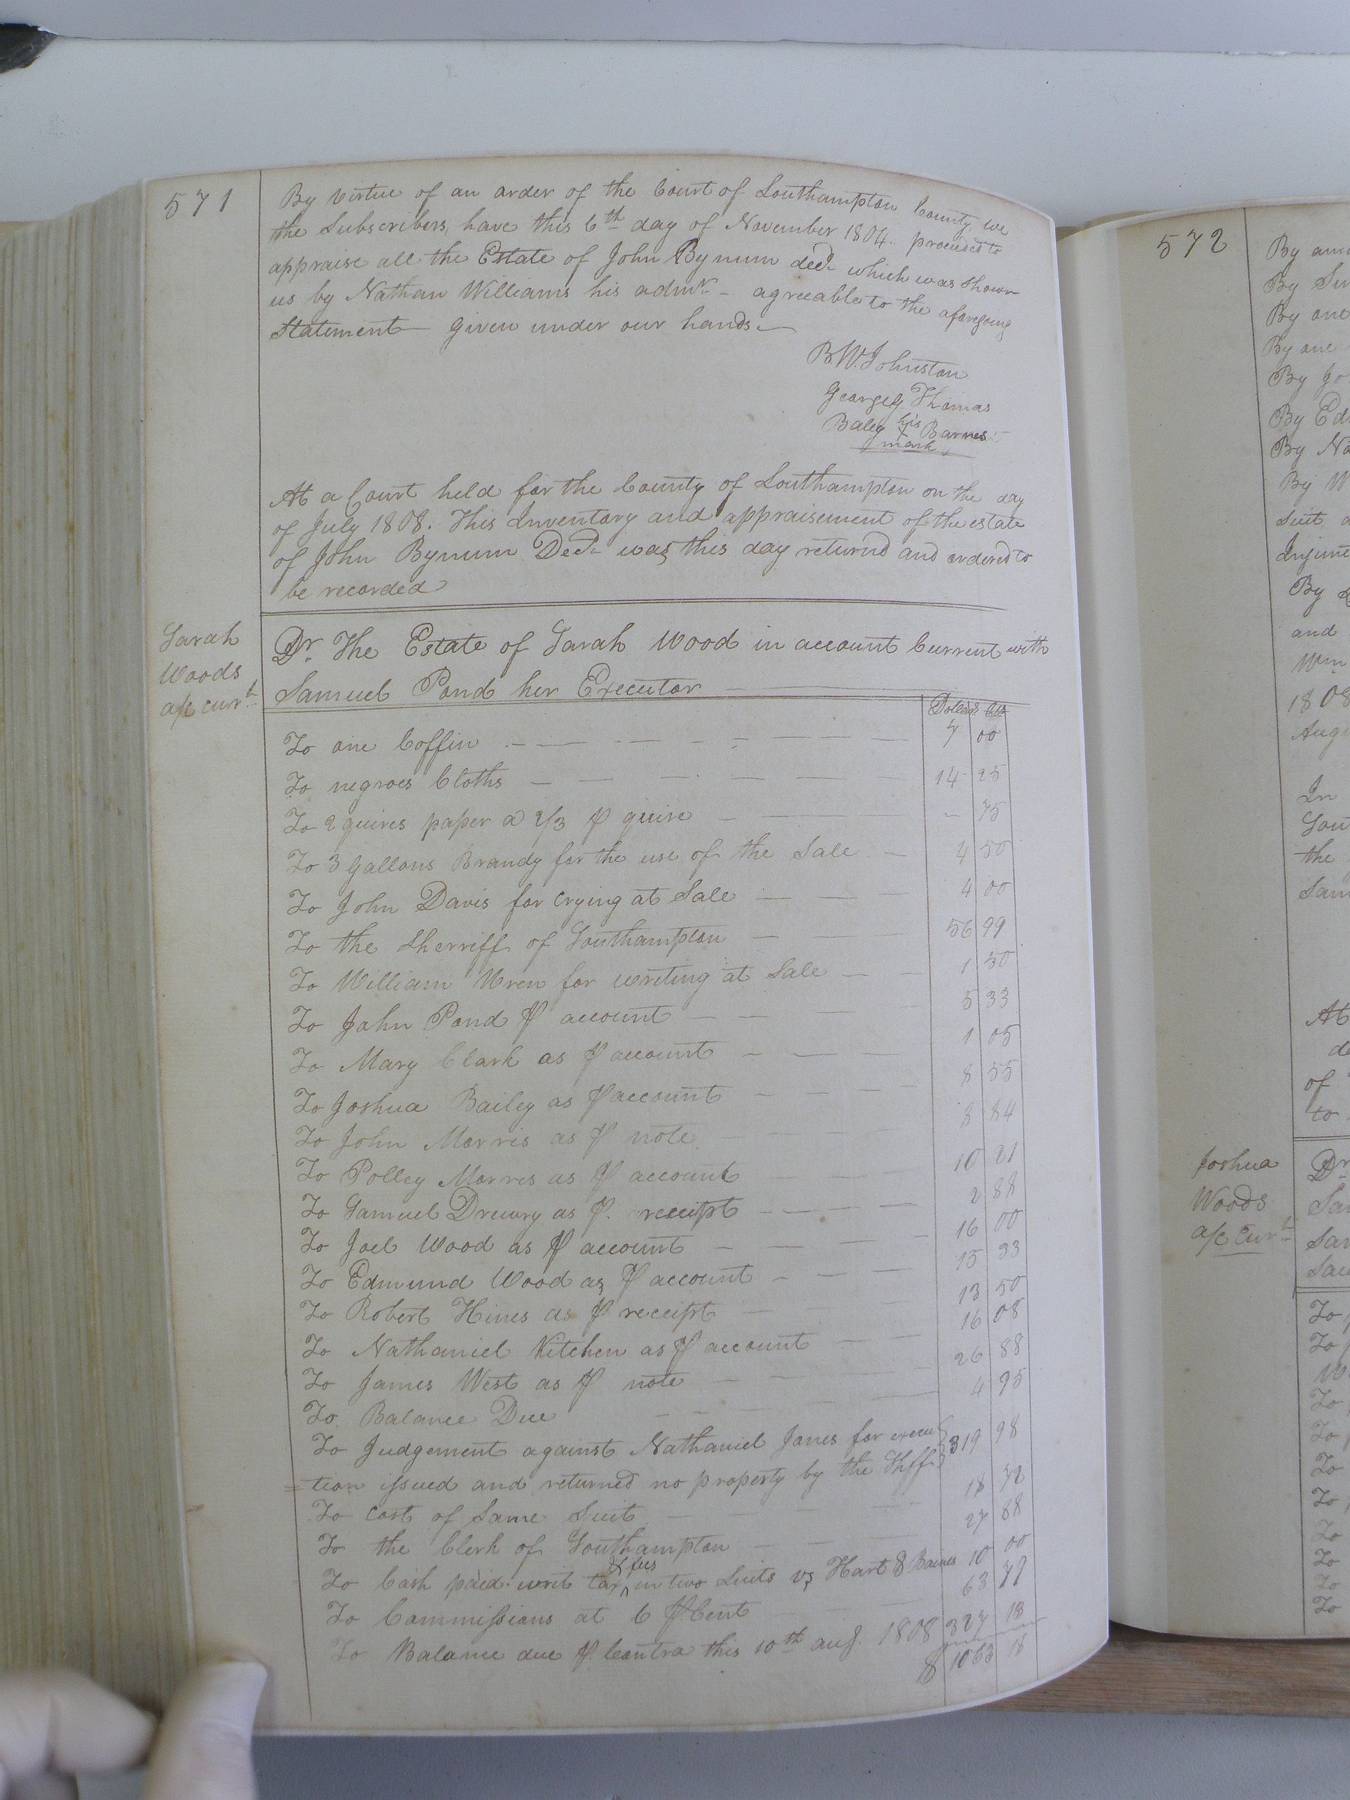 571
By virtue of an order of the Court of Southampton County, we
the Subscribers, have this 6th day of November 1804. proceeded to
appraise all the Estate of John Bynum decd. which was shown
us by Nathan Williams his admr. – agreeable to the aforegoing
Statement – Given under our hands –
B W. Johnston
George G. Thomas
Baley his Barnes
mark
At a Court held for the County of Southampton on the day
of July 1808. This Inventory and appraisement of the estate
of John Bynum Decd. was this day returnd and ordered to
be recorded
Sarah
Woods
a/c curt.
Dr. The Estate of Sarah Wood in account Current with
Samuel Pond her Executor
Dollars Cts
To one Coffin 7 00
To negroes Cloths 14 25
To 2 quires paper @ 2/3 ⅌ quire – 75
To 3 Gallons Brandy for the use of the Sale 4 50
To John Davis for crying at Sale 4 00
To the Sherriff of Southampton 56 99
To William Wren for writing at Sale 1 50
To John Pond ⅌ account 5 33
To Mary Clark as ⅌ account 1 05
To Joshua Bailey as ⅌ account 8 55
To John Morris as ⅌ note 8 84
To Polley Morris as ⅌ account 10 21
To Samuel Drewry as ⅌. receipt 2 88
To Joel Wood as ⅌ account 16 00
To Edmund Wood as ⅌ account 15 33
To Robert Hines as ⅌ receipt 13 50
To Nathaniel Kitchen as ⅌ account 16 08
To James West as ⅌ note 26 88
To Balance Due 4 95
To Judgement against Nathaniel Jones for execu
=tion issued and returned no property by the Shff. 319 98
To cost of Same Suit 18
To the Clerk of Southampton 27 68
To Cash paid writ tax & fees in two Suits vs Hart & Barnes 10 00
To Commissions at 6 ⅌ Cent 63 77
To Balance due ⅌ Contra this 10th aug. 1808 327 13
$ 1063 18
572
By
By
By one
By one
By Jo
By Ed
By Na
By W
Suit
Injunc
By
and
Wm
1808
Augu
In
Sou
the
Sam
At
of
to
Joshua
Woods
a/c Curt.
Dr
Sa
Sa
To
To
To
To
To
To
To
To
To
To